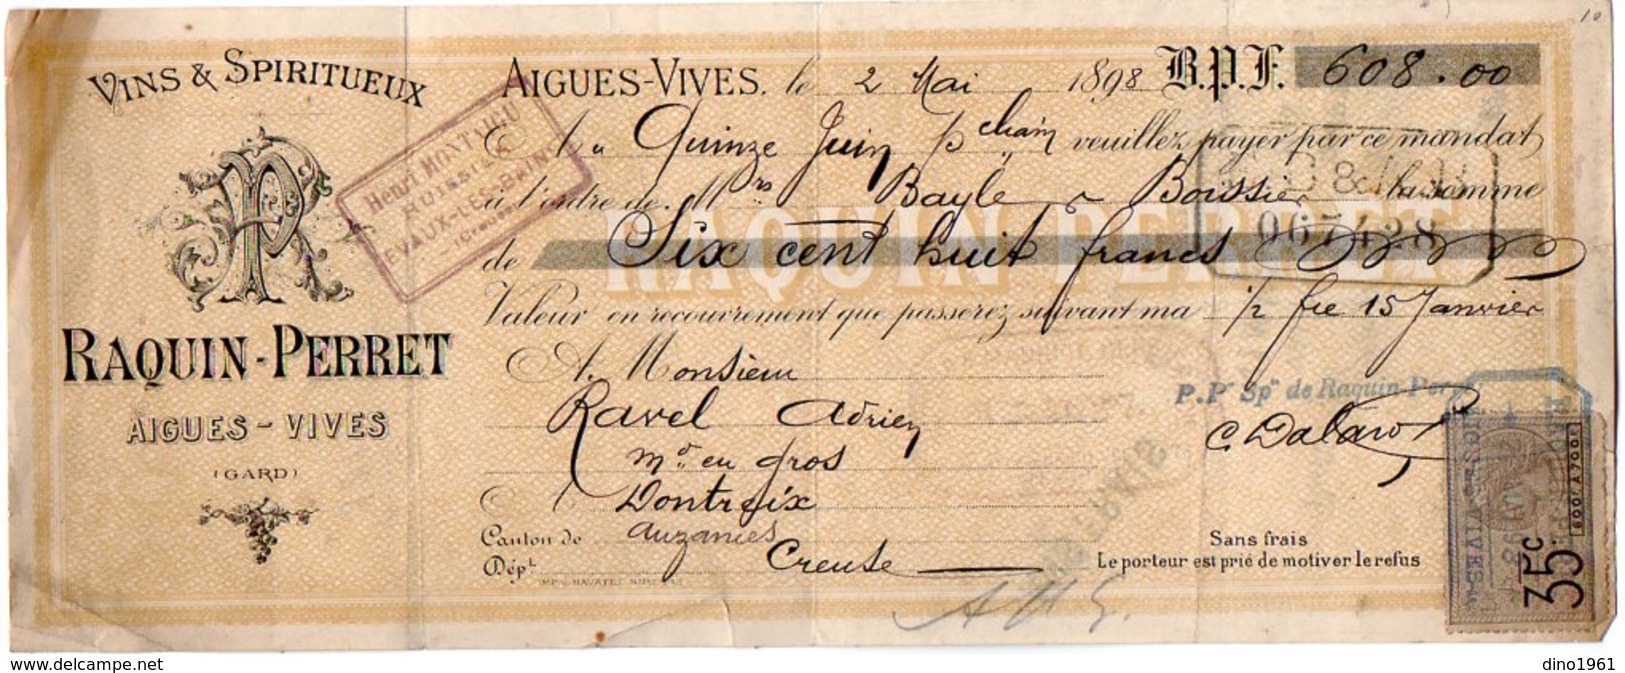 10
VINS & SPIRITUEUX
RAQUIN-PERRET
AIGUES-VIVES
(GARD)
AIGUES-VIVES, le 2 Mai 1898 B.P.F. 608.00
Au Quinze Juin pchain veuillez payer par ce mandat
à l'ordre de Mrs Bayle & Boissier la somme
de Six cent huit francs
Valeur en recouvrement que passerez suivant ma 1/2 fre 15 Janvier
A Monsieur
Ravel Adrien
Md en gros
A Dontreix
Canton de Auzances
Dépt Creuse
Henri MONTAIGU
HUISSIER
EVAUX-LES-BAINS
(Creuse)
067438
RAQUIN PERRET
P.Pr Spn de Raquin-Per
Sans frais
Le porteur est prié de motiver le refus
600f A 700f
35c
www.delcampe.net
dino1961